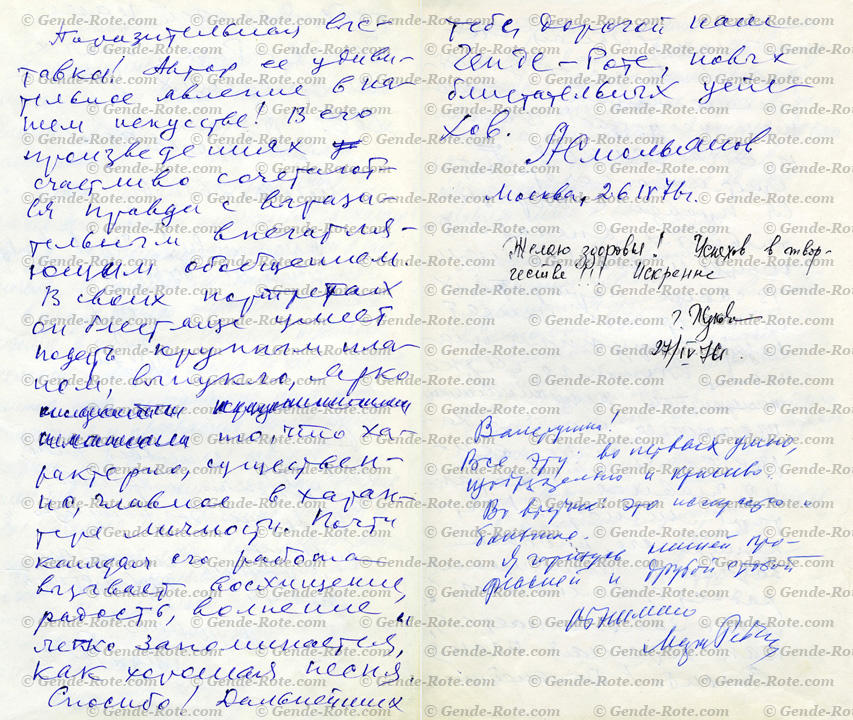 Поразительная выс-
тавка! Автор ее удиви-
тельное явление в на-
шем искусстве! В его
произведениях
счастливо сочетают-
ся правда с вырази-
тельным впечатля-
ющим обобщением.
В своих портретах
он блестяще умеет
подать крупным пла-
ном, выпукло, ярко
то, что ха-
рактерно, существен-
но, главное в харак-
тере личности. Почти
каждая его работа
вызывает восхищение,
радость, волнение,
легко запоминается,
как хорошая песня.
Спасибо! Дальнейших
тебе, дорогой наш
Генде-Роте, новых
блистательных успе-
хов.
АСмольянов
Москва, 26 IV 76г.
Желаю здоровья! Успехов в твор-
честве!!! Искренне
г. Жукова
27/IV 76г
Валерушка!
Все это во первых умно,
и красиво.
Во вторых это
Я горжусь нашей про-
фессией и дружбой с тобой
© Gende-Rote.com